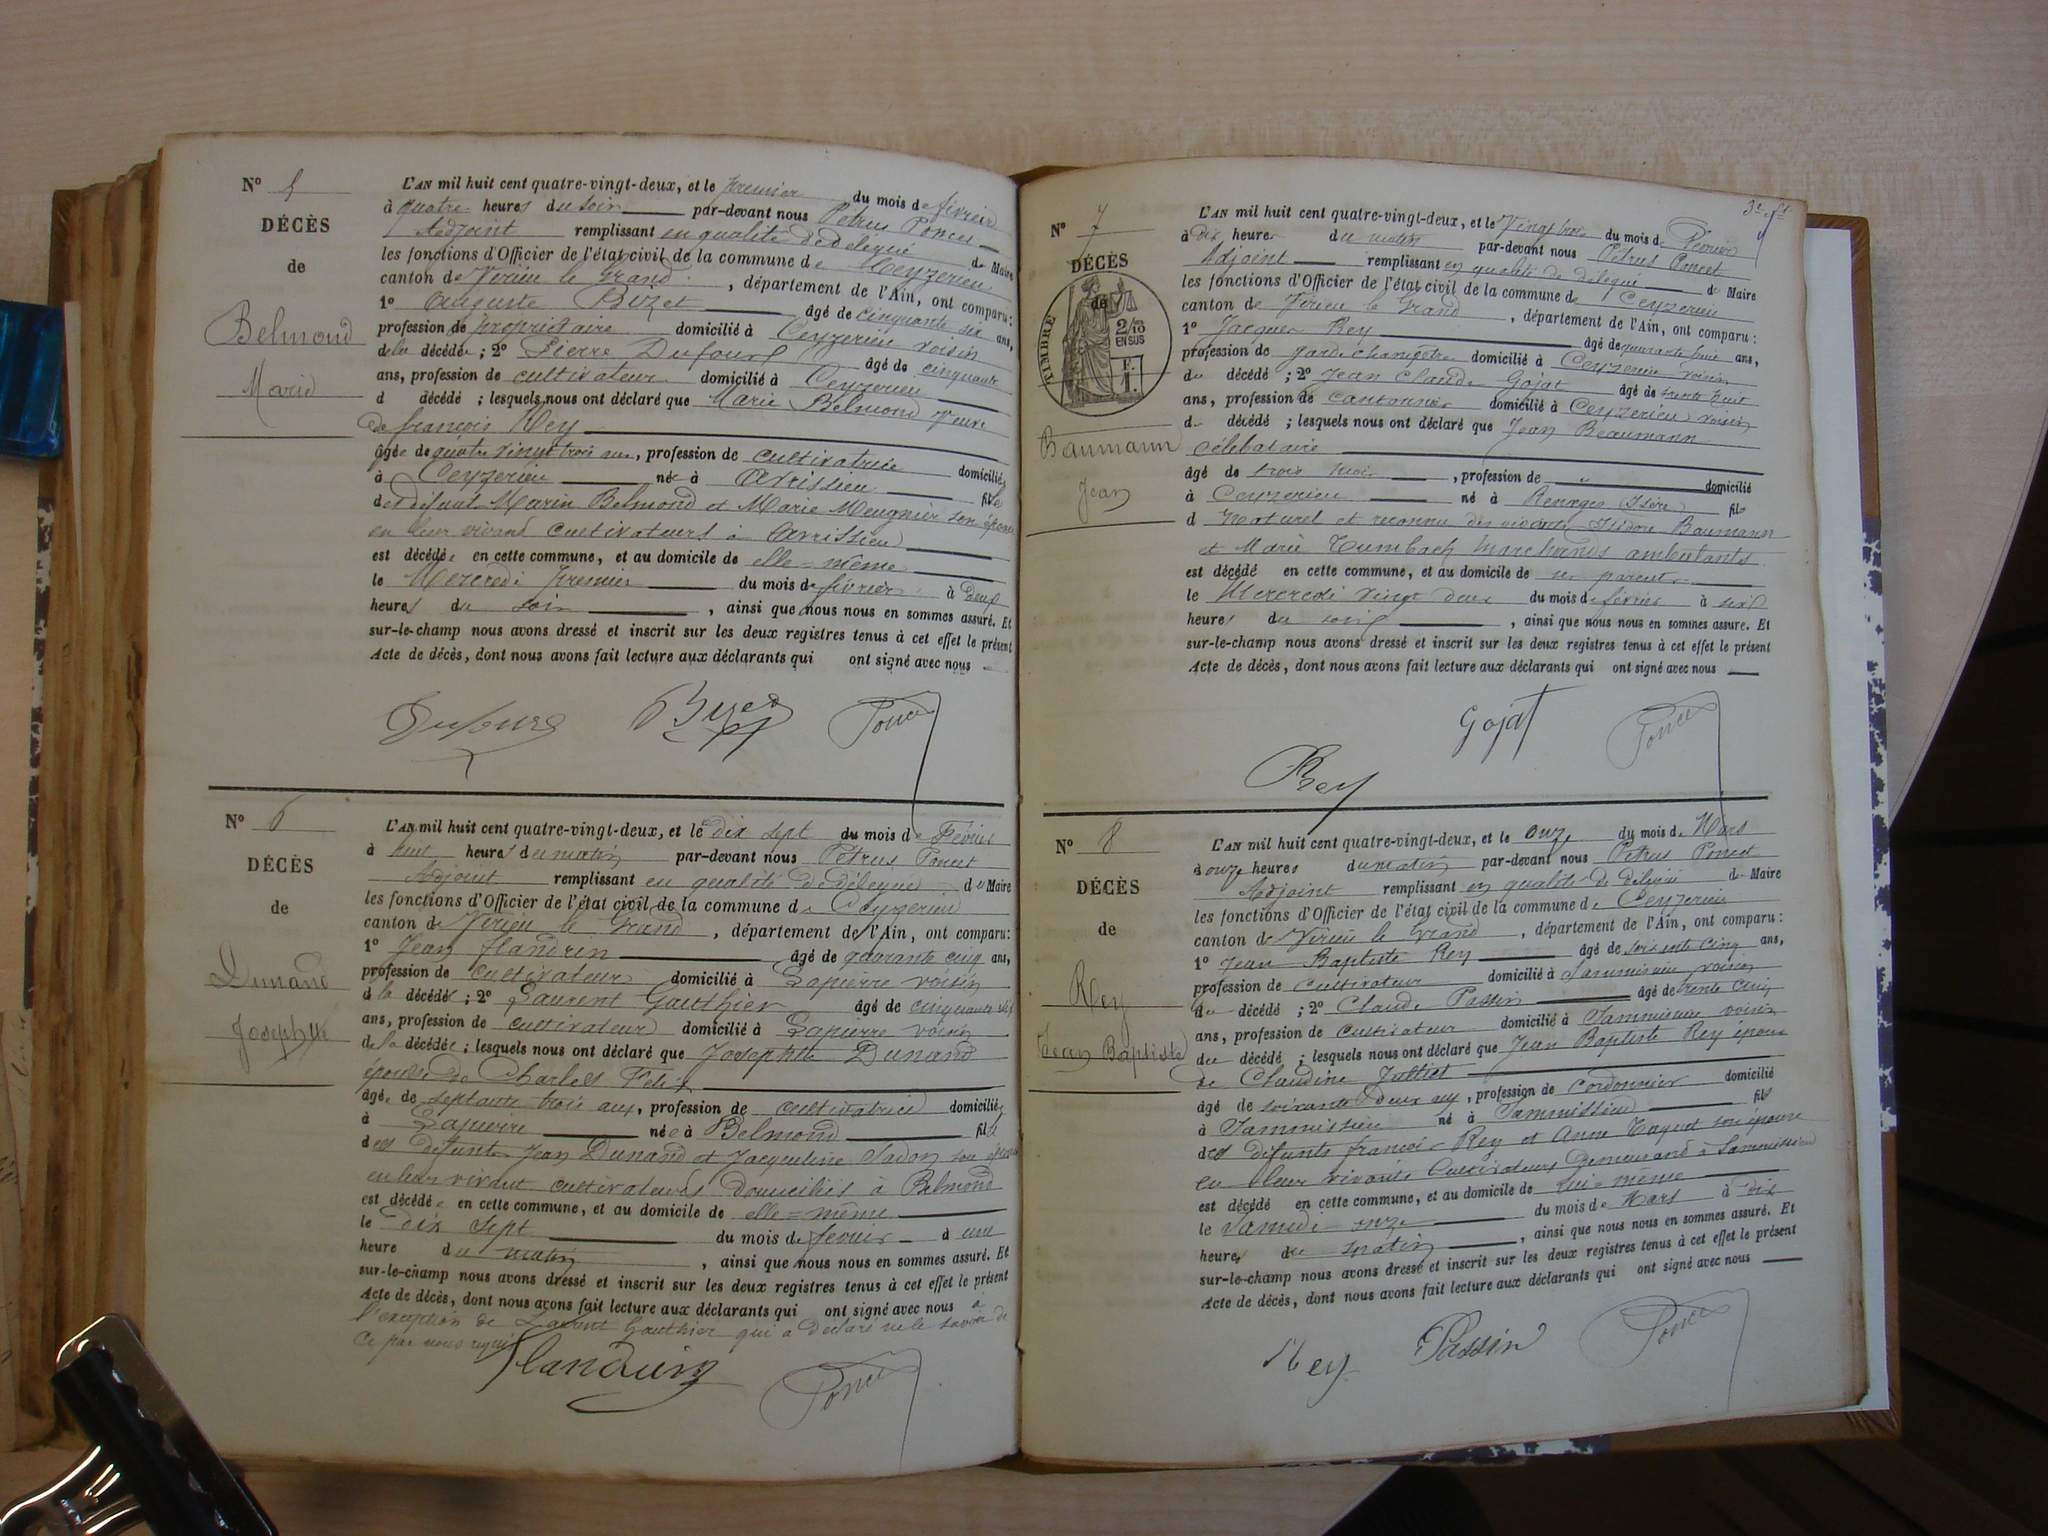 N° 5
DÉCÈS
de
Belmond
Marie
L'AN mil huit cent quatre-vingt-deux, et le premier du mois de février
à quatre heures du soir par-devant nous Pétrus Poncet
Adjoint remplissant en qualité de délégué de Maire
les fonctions d'Officier de l'état civil de la commune de Ceyzerieu
canton de Virieu le Grand, département de l'Ain, ont comparu:
1° Auguste Bizet âgé de cinquante six ans,
profession de propriétaire domicilié à Ceyzerieu voisin
de la décédée; 2° Pierre Dufour âgé de cinquante
ans, profession de cultivateur domicilié à Ceyzerieu
d décédé; lesquels nous ont déclaré que Marie Belmond veuve
de françois Rey
âgée de quatre vingt trois ans, profession de cultivatrice domiciliée
à Ceyzerieu née à Avrissieu fille
des défunts Marin Belmond et Marie Meugnier son épouse
en leur vivant cultivateurs à Avrissieu
est décédée en cette commune, et au domicile de elle-même
le Mercredi premier du mois de février à deux
heures du soir, ainsi que nous nous en sommes assuré. Et
sur-le-champ nous avons dressé et inscrit sur les deux registres tenus à cet effet le présent
Acte de décès, dont nous avons fait lecture aux déclarants qui ont signé avec nous
Dufour Bizet Poncet
N° 6
DÉCÈS
de
Dunand
Josephte
L'AN mil huit cent quatre-vingt-deux, et le dix sept du mois de Février
à huit heures du matin par-devant nous Pétrus Poncet
Adjoint remplissant en qualité de délégué du Maire
les fonctions d'Officier de l'état civil de la commune de Ceyzerieu
canton de Virieu le Grand, département de l'Ain, ont comparu:
1° Jean flandrin âgé de quarante cinq ans,
profession de cultivateur domicilié à Lapierre voisin
d la décédée; 2° Laurent Gauthier âgé de cinquante
ans, profession de cultivateur domicilié à Lapierre voisin
de la décédée; lesquels nous ont déclaré que Josephte Dunand
épouse de Charles Felix
âgée de septante trois ans, profession de cultivatrice domiciliée
à Lapierre née à Belmond fille
des défunts Jean Dunand et Jacqueline Sadon son épouse
en leur vivant cultivateurs domiciliés à Belmond
est décédée en cette commune, et au domicile de elle-même
le dix sept du mois de fevrier à une
heure du matin, ainsi que nous nous en sommes assuré. Et
sur-le-champ nous avons dressé et inscrit sur les deux registres tenus à cet effet le présent
Acte de décès, dont nous avons fait lecture aux déclarants qui ont signé avec nous à
l'exception de Laurent Gauthier qui a déclaré ne le savoir de
ce par nous requis
flandrin Poncet
3e ft
N° 7
DÉCÈS
de
TIMBRE
2/10
EN SUS
F.
1.
Baumann
Jean
L'AN mil huit cent quatre-vingt-deux, et le Vingt trois du mois de Février
à dix heures du matin par-devant nous Pétrus Poncet
Adjoint remplissant en qualité de délégué du Maire
les fonctions d'Officier de l'état civil de la commune de Ceyzerieu
canton de Virieu le Grand, département de l'Ain, ont comparu:
1° Jacques Rey âgé de quarante huit ans,
profession de garde champêtre domicilié à Ceyzerieu voisin
du décédé; 2° Jean Claude Gojat âgé de trente huit
ans, profession de cantonnier domicilié à Ceyzerieu voisin
du décédé; lesquels nous ont déclaré que Jean Beaumann
célebataire
âgé de trois mois, profession de " domicilié
à Ceyzerieu né à Renages (Isère) fils
d naturel et reconnu des vivants Isidore Baumann
et Marie Tumbach marchands ambulants
est décédé en cette commune, et au domicile de ses parents
le Mercredi vingt deux du mois de février à six
heures du soir, ainsi que nous nous en sommes assuré. Et
sur-le-champ nous avons dressé et inscrit sur les deux registres tenus à cet effet le présent
Acte de décès, dont nous avons fait lecture aux déclarants qui ont signé avec nous
Rey Gojat Poncet
N° 8
DÉCÈS
de
Rey
Jean Baptiste
L'AN mil huit cent quatre-vingt-deux, et le onze du mois de Mars
à onze heures du matin par-devant nous Pétrus Poncet
Adjoint remplissant en qualité de délégué de Maire
les fonctions d'Officier de l'état civil de la commune de Ceyzerieu
canton de Virieu le Grand, département de l'Ain, ont comparu:
1° Jean Baptiste Rey âgé de soixante cinq ans,
profession de cultivateur domicilié à Sammissieu voisin
du décédé; 2° Claude Passin âgé de trente cinq
ans, profession de cultivateur domicilié à Sammissieu voisin
du décédé; lesquels nous ont déclaré que Jean Baptiste Rey époux
de Claudine Julliet
âgé de soixante deux ans, profession de cordonnier domicilié
à Sammissieu né à Sammissieu fils
des défunts francois Rey et Anne Taquet son épouse
en leur vivants Cultivateurs demeurand à Sammissieu
est décédé en cette commune, et au domicile de lui-même
le Samedi onze du mois de Mars à dix
heures du matin, ainsi que nous nous en sommes assuré. Et
sur-le-champ nous avons dressé et inscrit sur les deux registres tenus à cet effet le présent
Acte de décès, dont nous avons fait lecture aux déclarants qui ont signé avec nous
Rey Passin Poncet